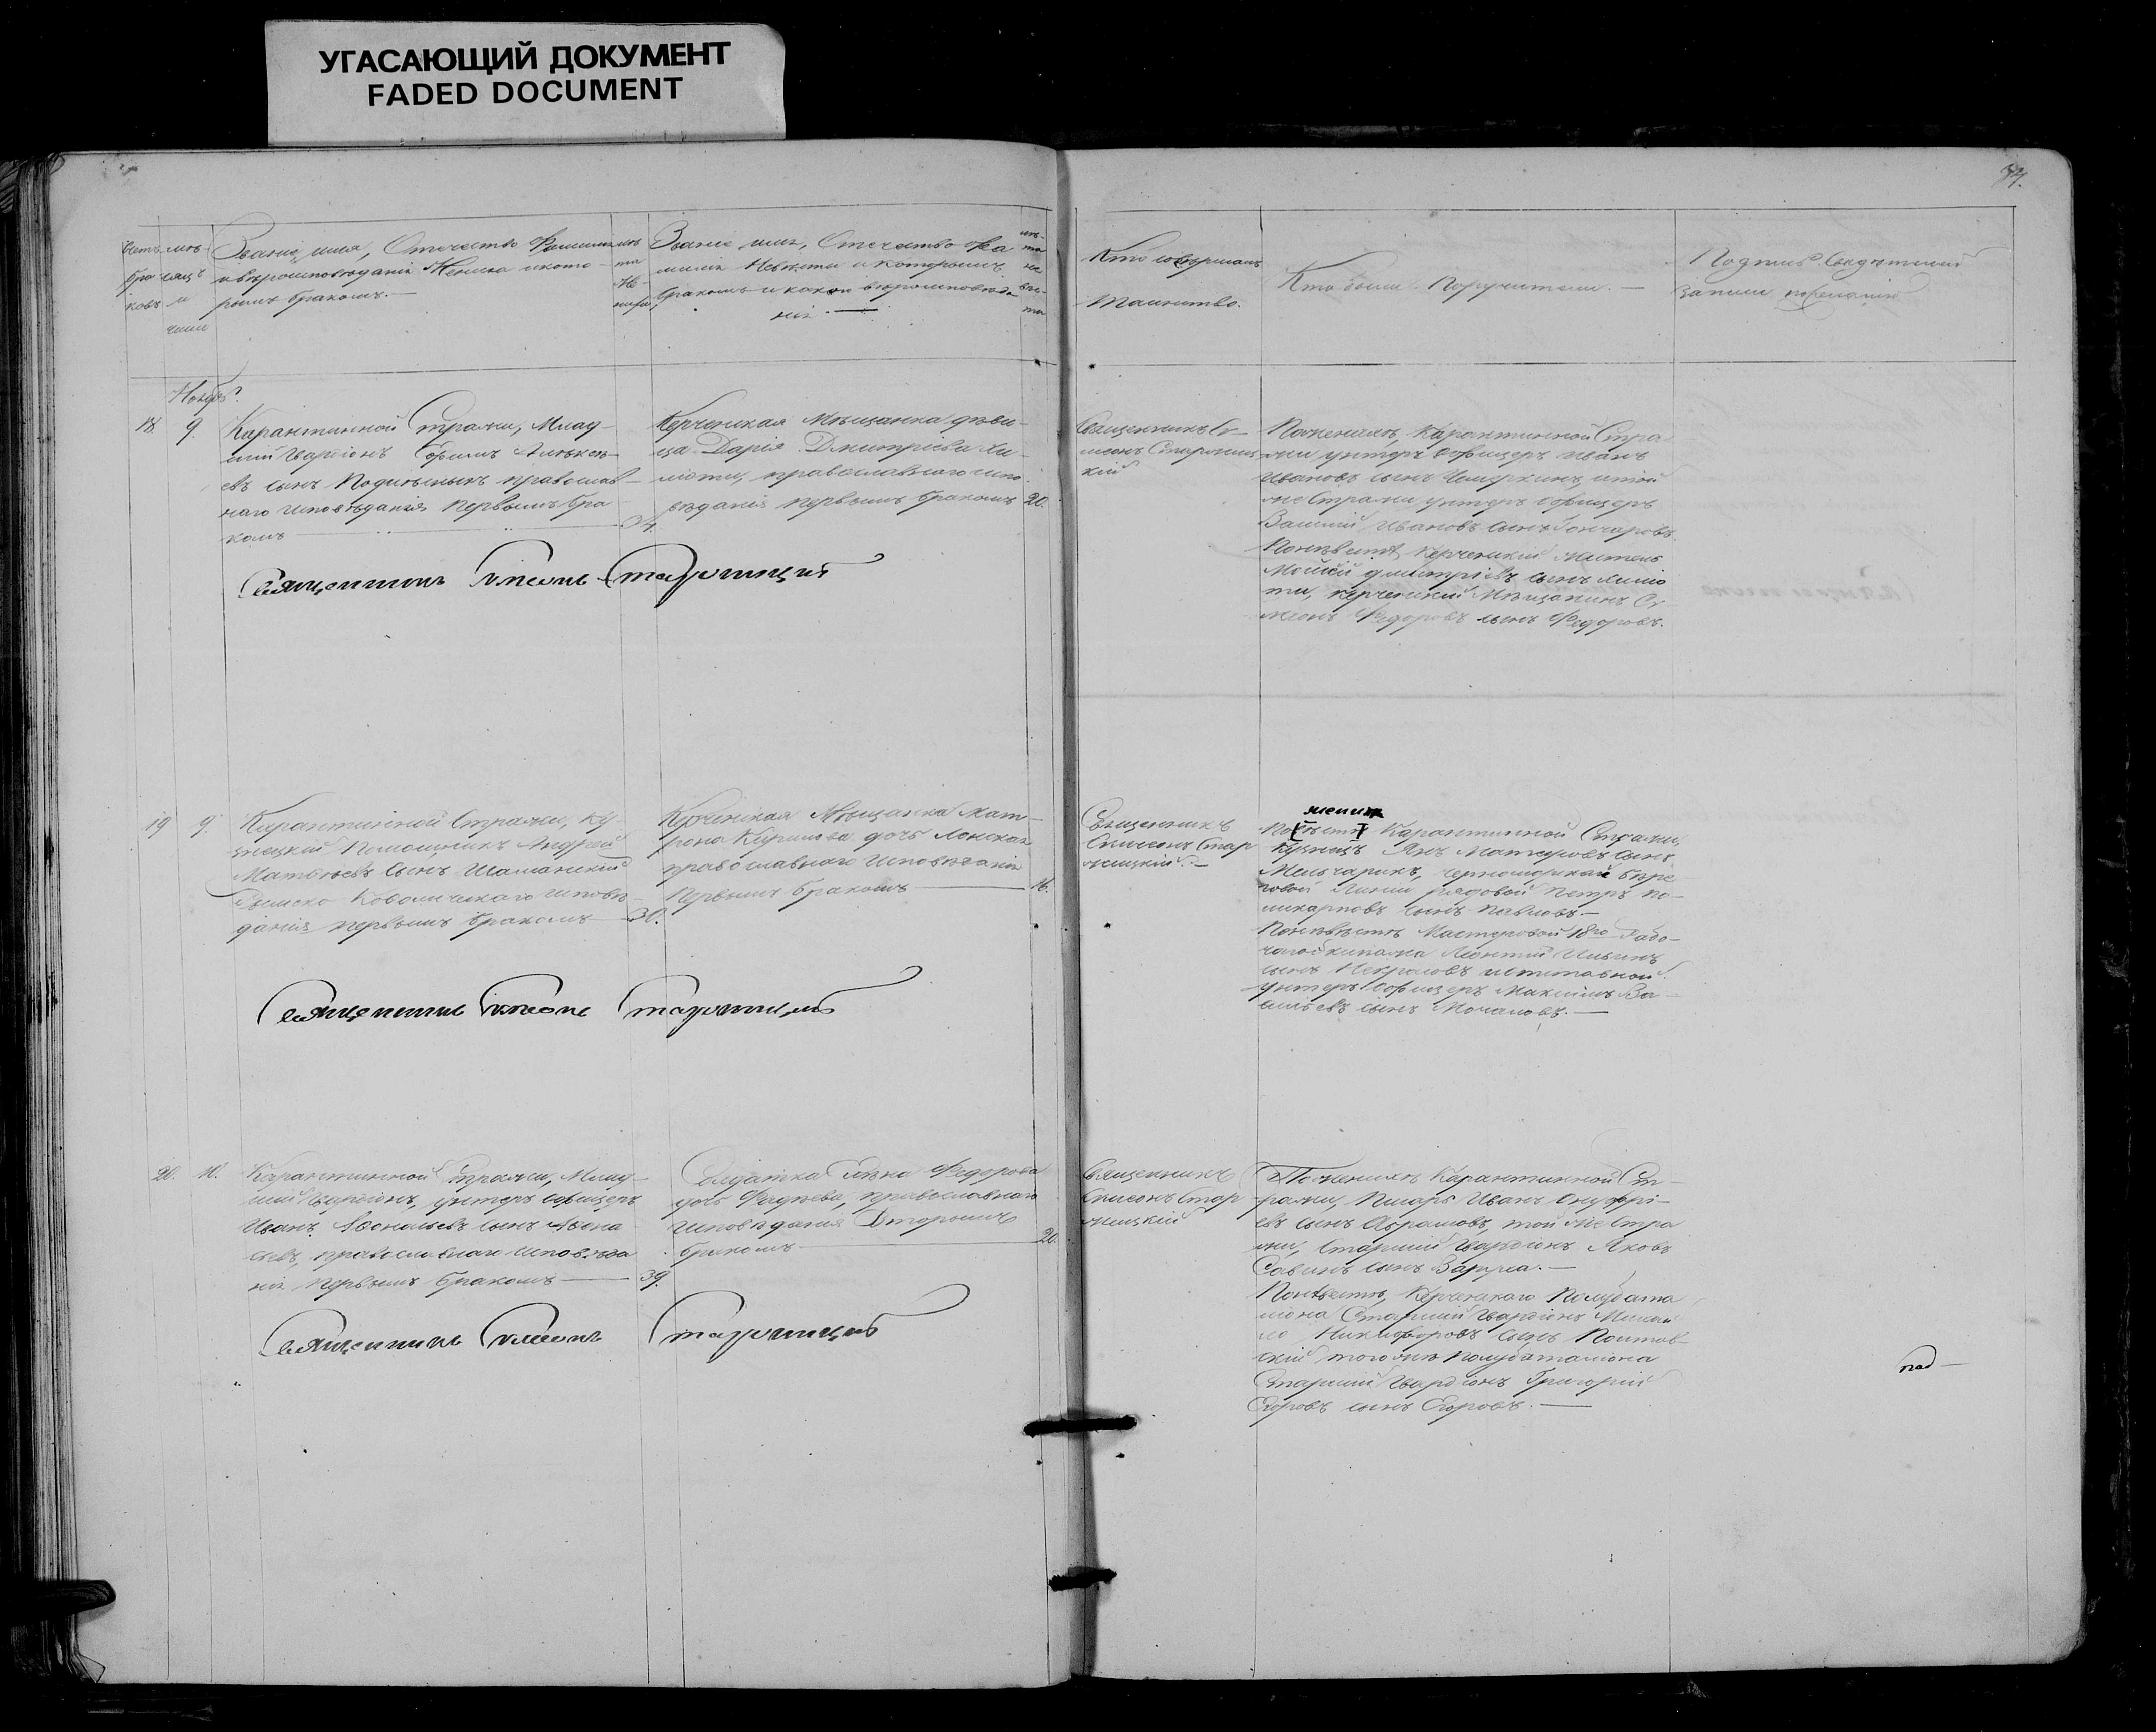 УГАСАЮЩИЙ ДОКУМЕНТ
FADED DOCUMENT
Званіе, имя, Отечество Фамилия
и вѣроисповѣданіе Жениха и кото-
рымъ бракомъ. —
Званіе, имя, Отечество Фа
милія Невѣсты и которымъ
бракомъ и какой вѣроисповѣда
нія. —
Кто совершалъ
Таинство.
Кто были Поручители. —
Подпись свидѣтелей
записи по желанію
Ноябрь
18 9.
Карантинной Стражи, Млад-
шій Гвардіонъ Ефимъ Алексѣ-
евъ сынъ православ-
наго исповѣданія первымъ бра
комъ
Керченская Мѣщанка дѣви-
ца Дарія Дмитріева
православнаго испо
вѣданія первымъ бракомъ 20.
Священникъ Си-
меонъ Старжиц
кій
По женихѣ, Карантинной Стра-
жи унтеръ Офицеръ Иванъ
Ивановъ сынъ той
же Стражи унтеръ Офицеръ
Василій Ивановъ сынъ Гончаровъ
По невѣстѣ, Керченскій Житель
Мойсей Дмитріевъ сынъ
Керченскій Мѣщанинъ Си-
меонъ Федоровъ сынъ Федоровъ.
Священникъ Симеонъ Старжицкій
19 9.
Карантинной Стражи, Ку-
знецкій Помощникъ Андрей
Матвѣевъ Сынъ Шаманскій
Римско Католическаго исповѣ-
данія первымъ бракомъ 30.
Керченская Мѣщанка Мат-
рона Кирилова дочь
православнаго исповѣданія
первымъ бракомъ 16.
Священникъ
Симеонъ Стар
жицкій. —
женихѣ
По невѣстѣ Карантинной Стражи,
Кузнецъ Янъ сынъ
Мельчарикъ, Черноморской бере
говой Линіи рядовой Петръ По-
ликарповъ сынъ Павловъ. —
По невѣстѣ Мастеровой 18го Рабо-
чаго экипажа Леонтій Ильинъ
сынъ Некрасовъ и отставной
унтеръ Офицеръ Максимъ Ва-
сильевъ сынъ —
Священникъ Симеонъ Старжицкій
20. 10.
Карантинной Стражи, Млад-
шій Гвардіонъ, унтеръ Офицеръ
Иванъ Афонасьевъ сынъ Афона-
сьевъ, православнаго исповѣда
нія первымъ бракомъ — 39.
Солдатка Федорова
дочь православнаго
исповѣданія Вторымъ
бракомъ 20.
Священникъ
Симеонъ Стар
жицкій
По женихѣ Карантинной Ст-
ражи, Писарь Иванъ Онуфрі-
евъ сынъ Абрамовъ, той же Стра
жи, Старшій Гвардіонъ Яковъ
Савинъ сынъ —
По невѣстѣ, Керченскаго Полубата
ліона Старшій Гвардіонъ Михай
ло Никифоровъ сынъ Полтав-
скій того же полубаталіона
Старшій Гвардіонъ Григорій
Егоровъ сынъ Егоровъ. —
Священникъ Симеонъ Старжицкій